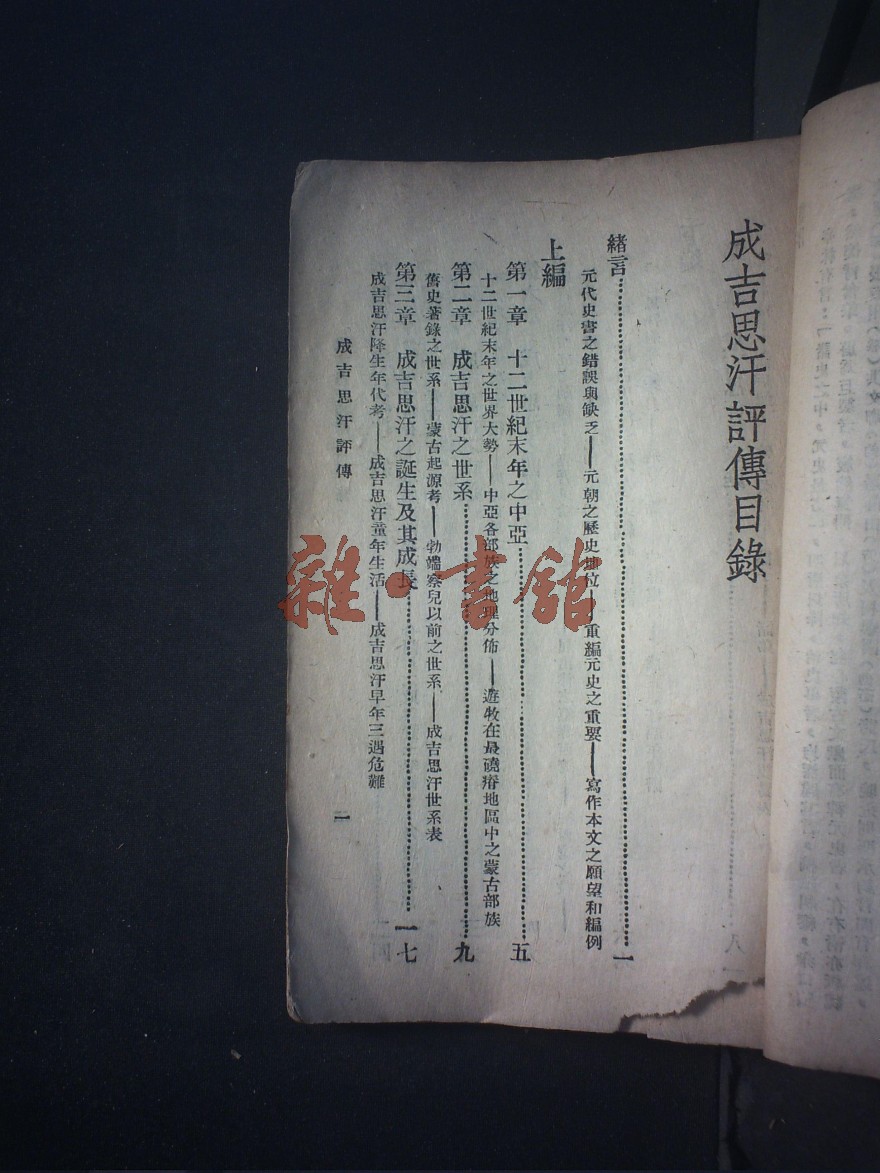 成吉思汗評傳目錄
緒言………一
元代史書之錯誤與缺乏——元朝之歷史地位——重編元史之重要——寫作本文之願望和編例
上編
第一章 十二世紀末年之中亞………五
十二世紀末年之世界大勢——中亞各部族之地理分佈——遊牧在最磽瘠地區中之蒙古部族
第二章 成吉思汗之世系………九
舊史著錄之世系——蒙古起源考——勃端察兒以前之世系——成吉思汗世系表
第三章 成吉思汗之誕生及其成長………一七
成吉思汗降生年代考——成吉思汗童年生活——成吉思汗早年三遇危難
成吉思汗評傳
雜·書館